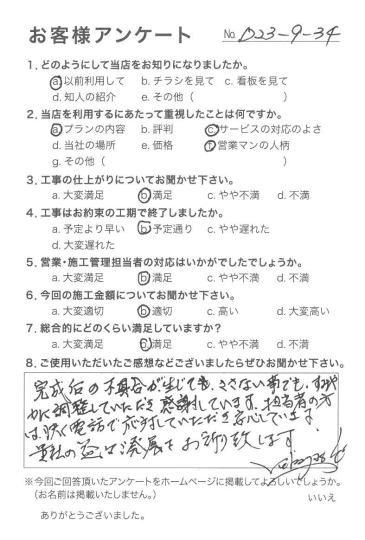 お客様アンケート No. D23-9-34
1. どのようにして当店をお知りになりましたか。
a. 以前利用して b. チラシを見て c. 看板を見て
d. 知人の紹介 e. その他（ ）
2. 当店を利用するにあたって重視したことは何ですか。
a. プランの内容 b. 評判 c. サービスの対応のよさ
d. 当社の場所 e. 価格 f. 営業マンの人柄
g. その他（ ）
3. 工事の仕上がりについてお聞かせ下さい。
a. 大変満足 b. 満足 c. やや不満 d. 不満
4. 工事はお約束の工期で終了しましたか。
a. 予定より早い b. 予定通り c. やや遅れた
d. 大変遅れた
5. 営業・施工管理担当者の対応はいかがでしたでしょうか。
a. 大変満足 b. 満足 c. やや不満 d. 不満
6. 今回の施工金額についてお聞かせ下さい。
a. 大変適切 b. 適切 c. 高い d. 大変高い
7. 総合的にどのくらい満足していますか?
a. 大変満足 b. 満足 c. やや不満 d. 不満
8. ご使用いただいたご感想などございましたらぜひお聞かせ下さい。
完成后の不具合が生じても、ささいな事でも、すみや
かに調整していただき感謝しています。担当者の方
は、快く電話で応対していただき安心しています。
貴社の益々発展をお祈り致します
※今回ご回答頂いたアンケートをホームページに掲載してよろしいでしょうか。
（お名前は掲載いたしません。） いいえ
ありがとうございました。